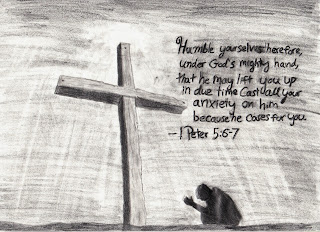 Humble yourselves herefore,
under God's mighty hand,
that he may lift you up
in due time Cast all your
anxiety on him
because he cares for you.
-- 1 Peter 5:6-7